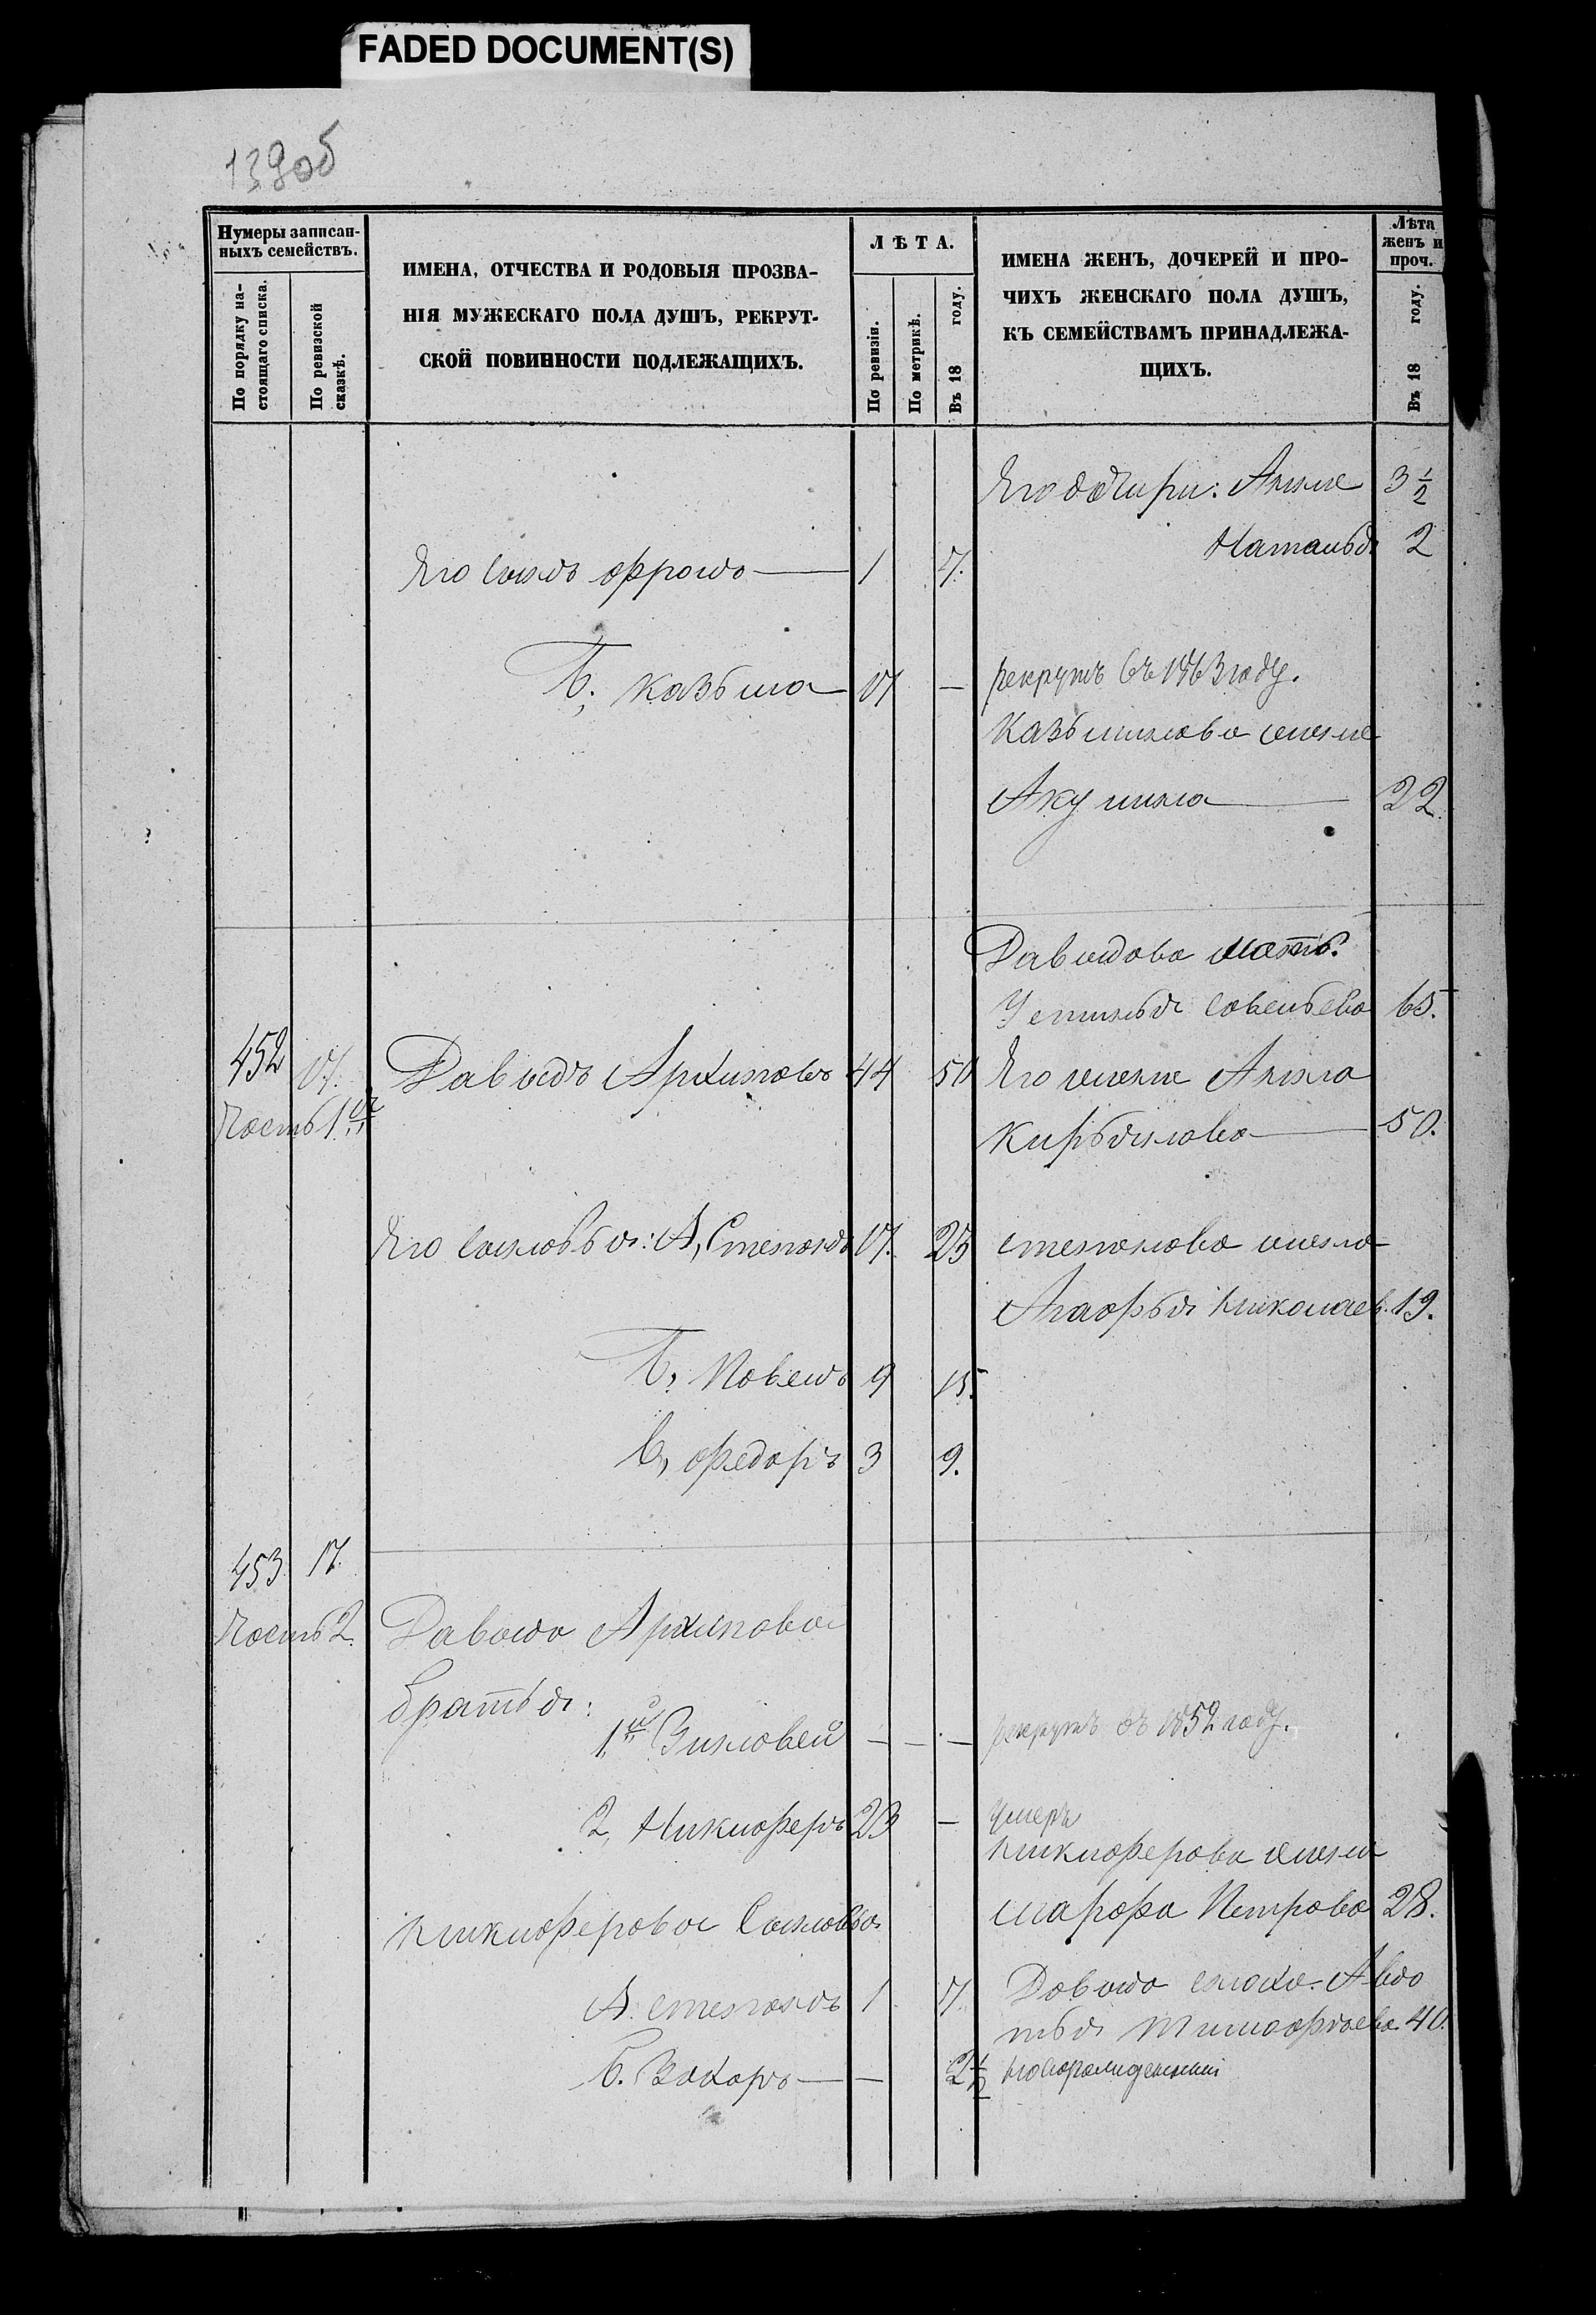 FADED DOCUMENT(S)
139об
Нумеры записан-
ныхъ семействъ.
По порядку на-
стоящаго списка.
По ревизской
сказкѣ.
ИМЕНА, ОТЧЕСТВА И РОДОВЫЯ ПРОЗВА-
НІЯ МУЖЕСКАГО ПОЛА ДУШЪ, РЕКРУТ-
СКОЙ ПОВИННОСТИ ПОДЛЕЖАЩИХЪ.
ЛѢТА.
По ревизіи.
По метрикѣ.
Въ 18 году.
ИМЕНА ЖЕНЪ, ДОЧЕРЕЙ И ПРО-
ЧИХЪ ЖЕНСКАГО ПОЛА ДУШЪ,
КЪ СЕМЕЙСТВАМЪ ПРИНАДЛЕЖА-
ЩИХЪ.
Лѣта
женъ и
проч.
Въ 18 году.
Его дочири: Анна 3 1/2
Наталья 2
Его сынъ Фролъ 1 7.
Б, Казьма 17 — рекрутъ въ 1863 году.
Казьминова жена
Акулина 22.
Давыдова мать
Устинья Савельева 65.
452 17. Давыдъ Архиповъ 44 50 Его жена Анна
Часть 1я
Кирьянова 50.
Его сыновья: А, Степанъ 17. 23 Степанова жена
Агафья Николаев. 19.
Б, Павелъ 9 15.
В, Федоръ 3 9.
453 17.
Часть 2. Давыда Архипова
братья:
1й Зиновей — — — рекрутъ въ 1852 году.
2, Никиферъ 23 — умеръ
Никиферова жена
Марфа Петрова 28.
Никиферова сыновья
А. Степанъ 1 7. Давыда сноха Авдо
тья Тимофѣева 40.
Б. Захаръ — 2 1/2 новорожденный